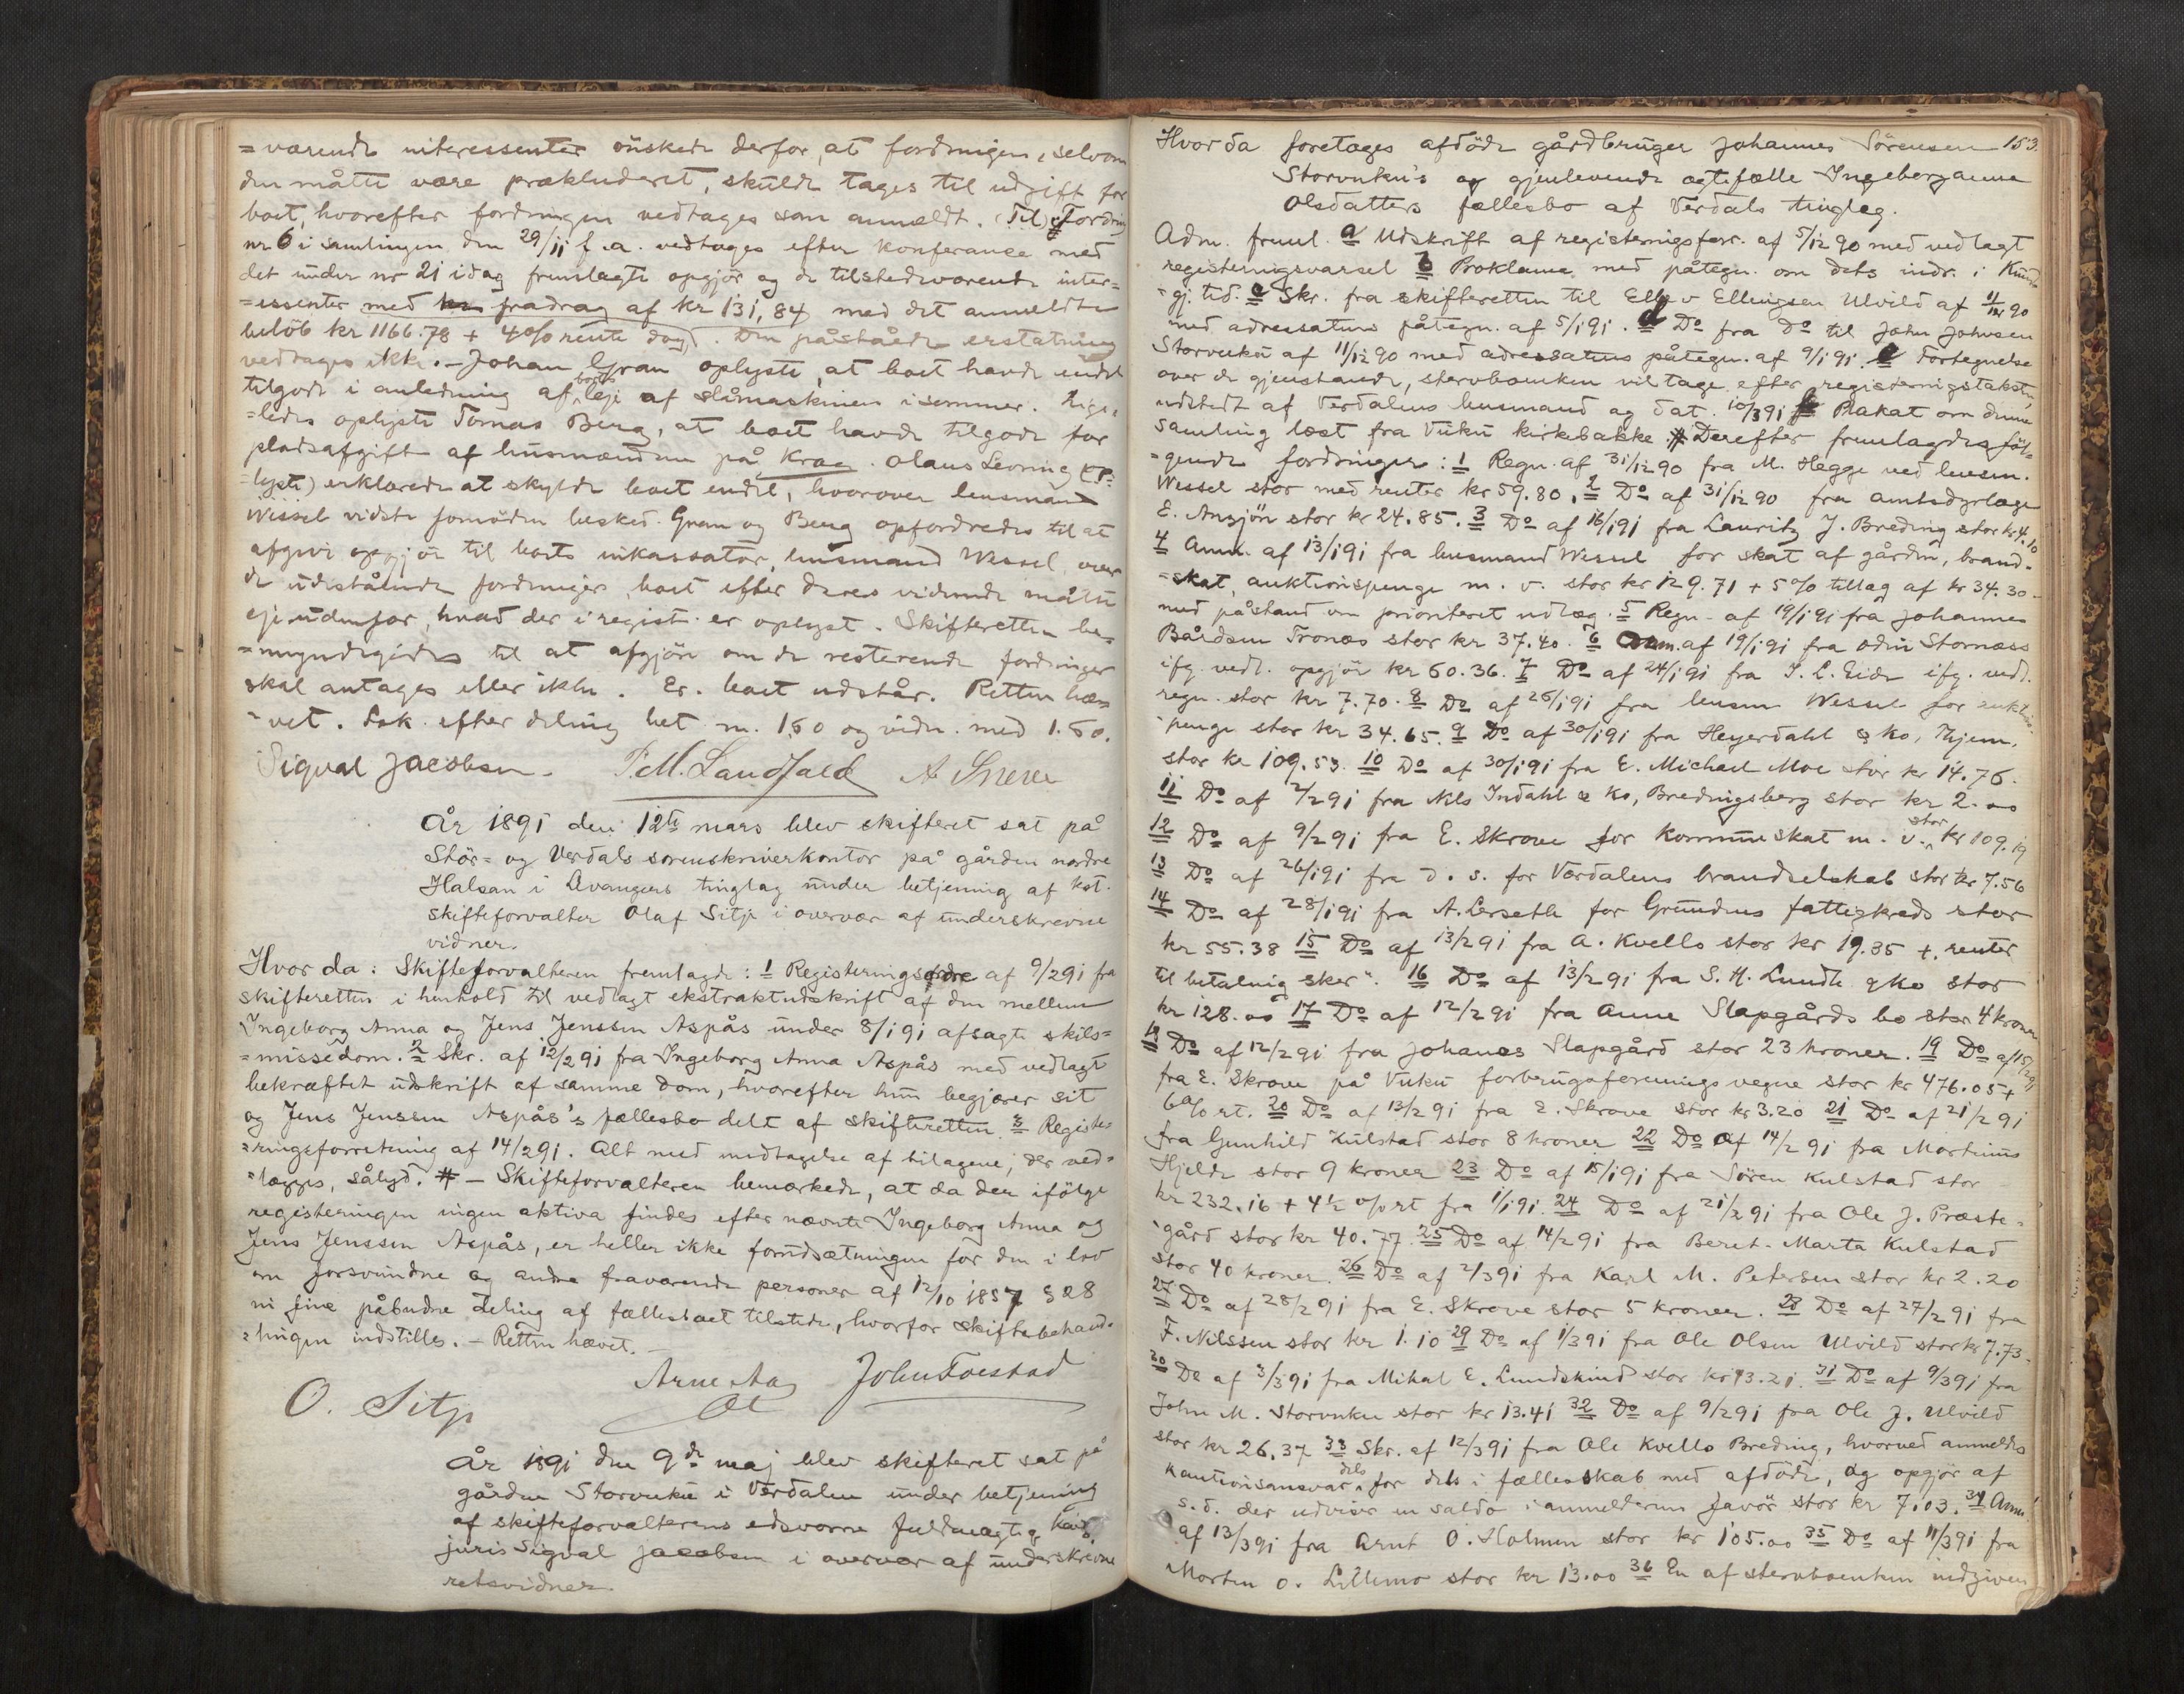 =værende interessenter önskede derfor, at fordringen, selvom
den måtte være prækluderet, skulde tages til udgift for
boet, hvorefter fordringen vedtages som anmeldt. (Til) Fordring
nr 6 i samlingen den 29/11 f. a. vedtages efter konferance med
det under nr 21 idag fremlagte opgjör og de tilstedeværende inter=
=essenter med fradrag af kr 131,84 med det anmeldte
belöb kr 1166.78 + 4% rente dog. Den påståede erstatning
vedtages ikke. - Johan Gran oplyste, at boet havde endel
tilgode i anledning af boets leje af slåmaskinen i sommer. Lige=
=ledes oplyste Tomas Berg, at boet havde tilgode for
pladsafgift af husmændene på Krag. Olaus Levring (op=
=lyste) erklærede at skylde boet endel, hvorover lensmand
Wessel vidste fornöden besked. Gran og Berg opfordredes til at
afgive opgjör til boets inkassator, lensmand Wessel, over
de udestående fordringer, boet efter deres vidende måtte
eje udenfor, hvad der i regist. er oplyst. Skifteretten be=
=myndigedes til at afgjöre om de resterende fordringer
skal antages eller ikke. Er. boet udstår. Retten hæ=
=vet. Lok. efter deling bet m. 1,60 og vidn. med 1.60.
Sigval Jacobsen. P M. Landfald A Sneve
År 1891 den 12te mars blev skifteret sat på
Stör- og Verdals sorenskriverkontor på gården nordre
Halsan i Levangers tinglag under betjening af kst.
skifteforvalter Olaf Sitje i overvær af underskrevne
vidner.
Hvor da: Skifteforvalteren fremlagde: 1 Registeringsordre af 9/2 91 fra
skifteretten i henhold til vedlagt ekstraktudskrift af den mellem
Ingeborg Anna og Jens Jenssen Aspås under 8/1 91 afsagte skils=
=missedom. 2 Skr. af 12/2 91 fra Ingeborg Anna Aspås med vedlagt
bekræftet udskrift af samme dom, hvorefter hun begjærer sit
og Jens Jenssen Aspås's fællesbo delt af skifteretten. 3 Registe=
=ringsforretning af 14/2 91. Alt med undtagelse af bilagene, der ved=
=lægges, sålyd. # - Skifteforvalteren bemærkede, at da der ifölge
registeringen ingen aktiva findes efter nævnte Ingeborg Anna og
Jens Jenssen Aspås, er heller ikke forudsætningen for den i lov
om forsvundne og andre fraværende personer af 12/10 1857 § 28
in fine påbudne deling af fællesboet tilstede, hvorfor skiftebehand=
=lingen indstilles. - Retten hævet. -
O. Sitje Arne Aag John Forstad
År 1891 den 9de maj blev skifteret sat på
gården Storvuku i Verdalen under betjening
af skifteforvalterens edsvorne fuldmægtig kand.
juris Sigval Jacobsen i overvær af underskrevne
retsvidner.
153.
Hvor da foretages afdöde gårdbruger Johannes Sörensen
Storvuku's og gjenlevende ægtefælle Ingeborganna
Olsdatters fællesbo af Verdals tinglag.
Adm. freml. a Udskrift af registeringsforr. af 5/12 90 med vedlagt
registeringsvarsel b Proklama med påtegn. om dets indr. i Kund=
=gj. tid. c Skr. fra skifteretten til Ellev Ellingsen Ulvild af 11/12 90
med adressatens påtegn. af 5/1 91. d Do fra do til John Johnsen
Storvuku af 11/12 90 med adressatens påtegn. af 9/1 91. e Fortegnelse
over de gjenstande, stervboenken vil tage efter registeringstakst,
udstedt af Verdalens lensmand og dat. 10/3 91 f Plakat om denne
samling læst fra Vuku kirkebakke. # Derefter fremlagdes föl=
=gende fordringer: 1 Regn. af 31/12 90 fra M. Hegge ved lensm.
Wessel stor med renter kr 59.80. 2 Do af 31/12 90 fra amtsdyrlæge
E. Ansjön stor kr 24.85. 3 Do af 16/1 91 fra Lauritz J. Breding stor kr 4.10
4 Anm. af 13/1 91 fra lensmand Wessel for skat af gården, brand=
=skat, auktionspenge m. v. stor kr 129.71 + 5% tillæg af kr 34.30
med påstand om prioriteret udlæg. 5 Regn. af 19/1 91 fra Johannes
Bårdsen Tronæs stor kr 37.40. 6 Anm. af 19/1 91 fra Odin Stornæss
ifg. vedl. opgjör kr 60.36. 7 Do af 24/1 91 fra I. L. Eide ifg. vedl.
regn. stor kr 7.70. 8 Do af 26/1 91 fra lensm Wessel for auktions=
=penge stor kr 34.65. 9 Do af 30/1 91 fra Heyerdahl & Ko, Thjem.
stor kr 109.53. 10 Do af 30/1 91 fra E. Michael Moe stor kr 14.76.
11 Do af 2/2 91 fra Nils Indahl & Ko, Bredingsberg stor kr 2.00
12 Do af 9/2 91 fra E. Skrove for kommuneskat m. v. stor kr 109.19
13 Do af 26/1 91 fra d. s. for Værdalens brandselskab stor kr 7.56
14 Do af 28/1 91 fra A. Lerseth for Grundens fattigkreds stor
kr 55.38 15 Do af 13/2 91 fra A. Kvello stor kr 19.35 +. renter
til betalning sker". 16 Do af 13/2 91 fra S. H. Lundh & Ko stor
kr 128.00 17 Do af 12/2 91 fra Anne Slapgårds bo stor 4 kroner
18 Do af 12/2 91 fra Johanes Slapgård stor 23 kroner. 19 Do af 15/2 91
fra E. Skrove på Vuku forbrugsforenings vegne stor kr 476.05 +
6% rt. 20 Do af 13/2 91 fra E. Skrove stor kr 3.20 21 Do af 21/2 91
fra Gunhild Kulstad stor 8 kroner 22 Do af 14/2 91 fra Martinus
Hjelde stor 9 kroner 23 Do af 15/1 91 fra Sören Kulstad stor
kr 232.16 + 4½ % rt fra 1/1 91. 24 Do af 21/2 91 fra Ole J. Præste=
=gård stor kr 40.77. 25 Do af 14/2 91 fra Beret-Marta Kulstad
stor 40 kroner. 26 Do af 2/3 91 fra Karl M. Petersen stor kr 2.20
27 Do af 28/2 91 fra E. Skrove stor 5 kroner. 28 Do af 27/2 91 fra
F. Nilssen stor kr 1.10 29 Do af 1/3 91 fra Ole Olsen Ulvild stor kr 7.73.
30 Do af 3/3 91 fra Mihal E. Lundskind stor kr 13.21. 31 Do af 9/3 91 fra
John M. Storvuku stor kr 13.41 32 Do af 9/2 91 fra Ole J. Ulvild
stor kr 26.37 33 Skr. af 12/3 91 fra Ole Kvello Breding, hvorved anmeldes
kautionsansvar dels for dels i fællesskab med afdöde, og opgjör af
s. d. der udviser en saldo i anmelderens favör stor kr 7.03. 34 Anm.
af 13/3 91 fra Arnt O. Holmen stor kr 105.00 35 Do af 11/3 91 fra
Morten O. Lillemo stor kr 13.00 36 En af stervboenken indgiven